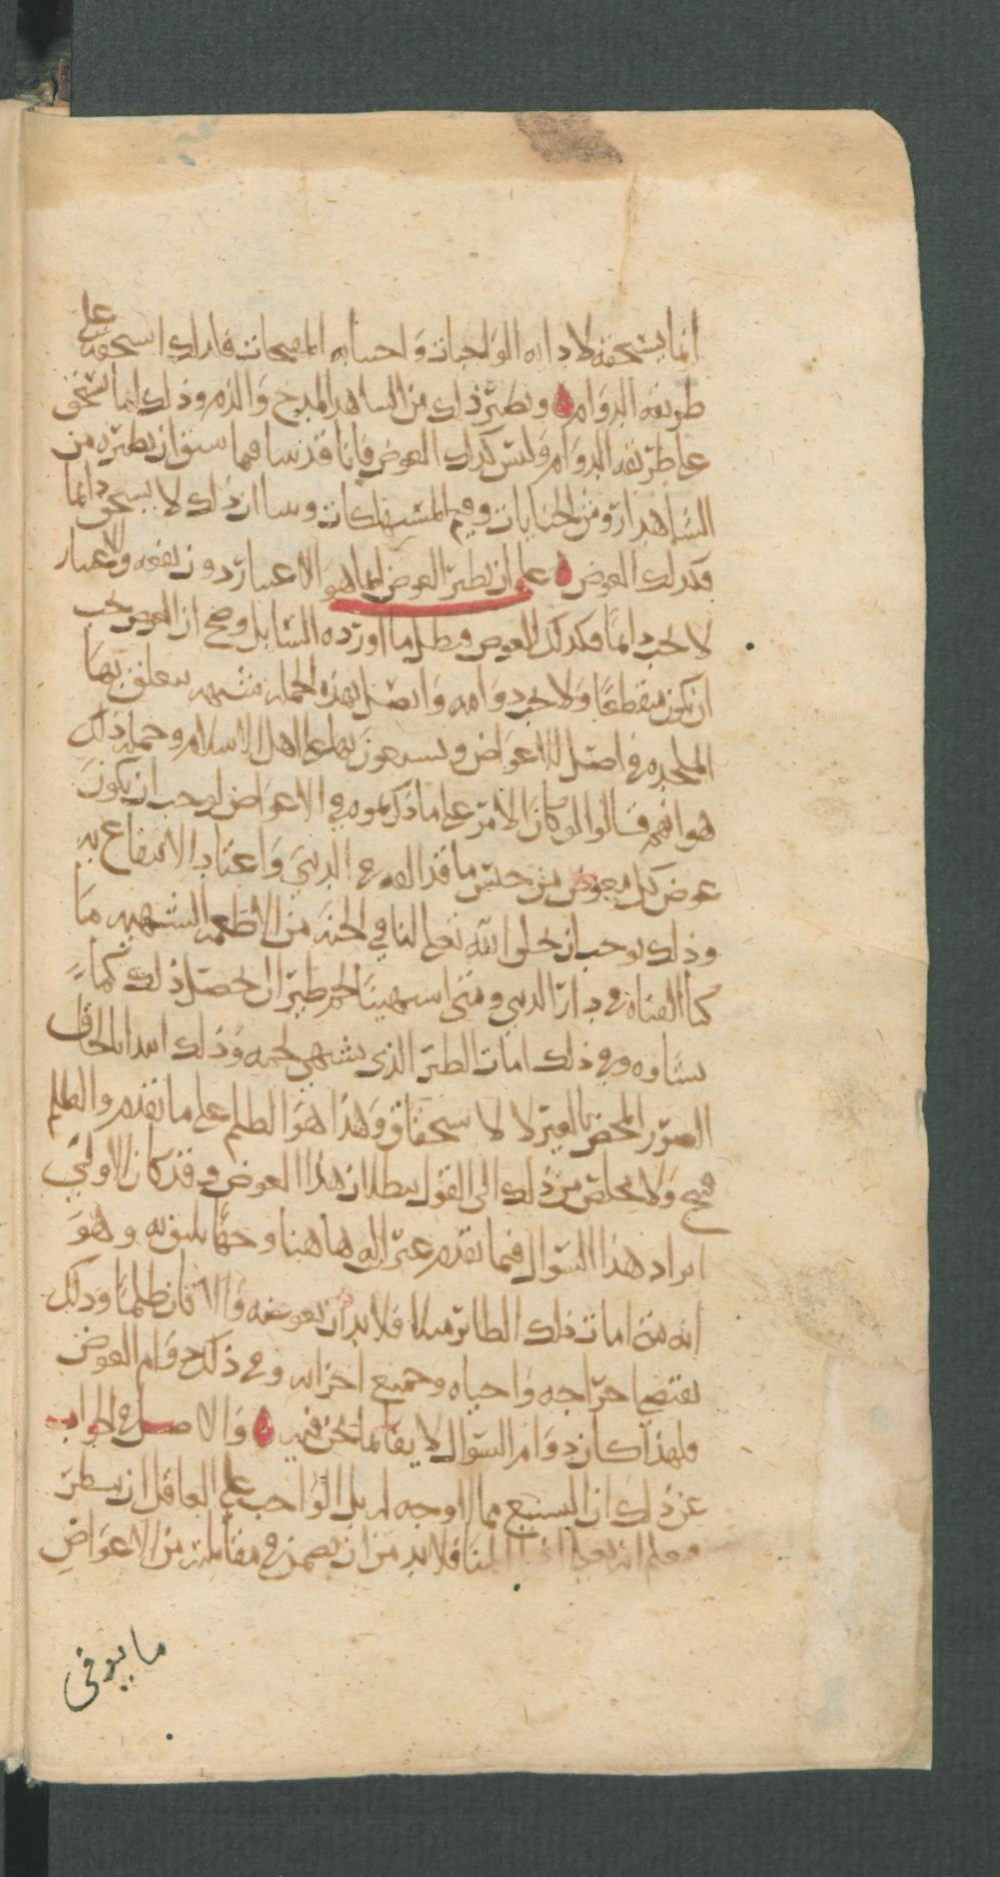 انما يستحقه لادايه الواجبات واجتنابه المقبحات فلذلك استحقه على
طريقه الدوام ونظير ذلك من الشاهد المدح والذم وذلك انما يستحق
على طريقه الدوام وليس كذلك العوض فانا قد بينا فيما سبق ان نظيره من
الشاهد اروش الجنايات وقيم المستهلكات وبينا ان ذلك لا يستحق دائما
فكذلك العوض علم ان نظير العوض انما هو الاعتبار دون نفعه والاعتبار
لا يجب دائما فكذلك العوض فبطل ما اورده السايل وصح ان العوض يجب
ان يكون منقطعا ولا يجب دوامه واتصل بهذه الجملة شبهه يتعلق بها
الملحده في اصل الاعواض ويشنعون بها على اهل الاسلام وجملة ذلك
هو انهم قالوا لو كان الامر على ما ذكرتموه في الاعواض لوجب ان يكون
عوض كل معوض من جنس ما قد الفه في الدنيى واعتاد الانتفاع به
وذلك يوجب ان يخلق الله تعلى لنا في الجنة من الاطعمه الشهيه ما
كنا الفناه في دار الدنيى ومتى اشتهينا لحم طير ان يحصل ذلك كما
نشاوه وفي ذلك امات الطير الذي نشتهي لحمه وذلك ابتدا بالحاق
الضرر المحض بالغير لا لاستحقاق وهذا هو الظلم على ما تقدم والظلم
قبيح ولا مخلص من ذلك الى القول ببطلان هذا العوض وقد كان الاولى
ايراد هذا السؤال فيما تقدم غير ان له هاهنا وجها يليق به وهو
انه متى امات ذلك الطاير مثلا فلا بد ان يعوضه والا كان ظلما وذلك
يقتضي اخراجه واحياه وجميع اجزايه وفي ذلك دوام العوض
فلهذا كان دوام السؤال لايقا بما نحن فيه والاصل في الجواب
عن ذلك ان التشنيع مما لا وجه له بل الواجب على العاقل ان ينظر
فيعلم انه تعلى المنا فلا بد من ان يضمن في مقابلته من الاعواض
ما يوفى